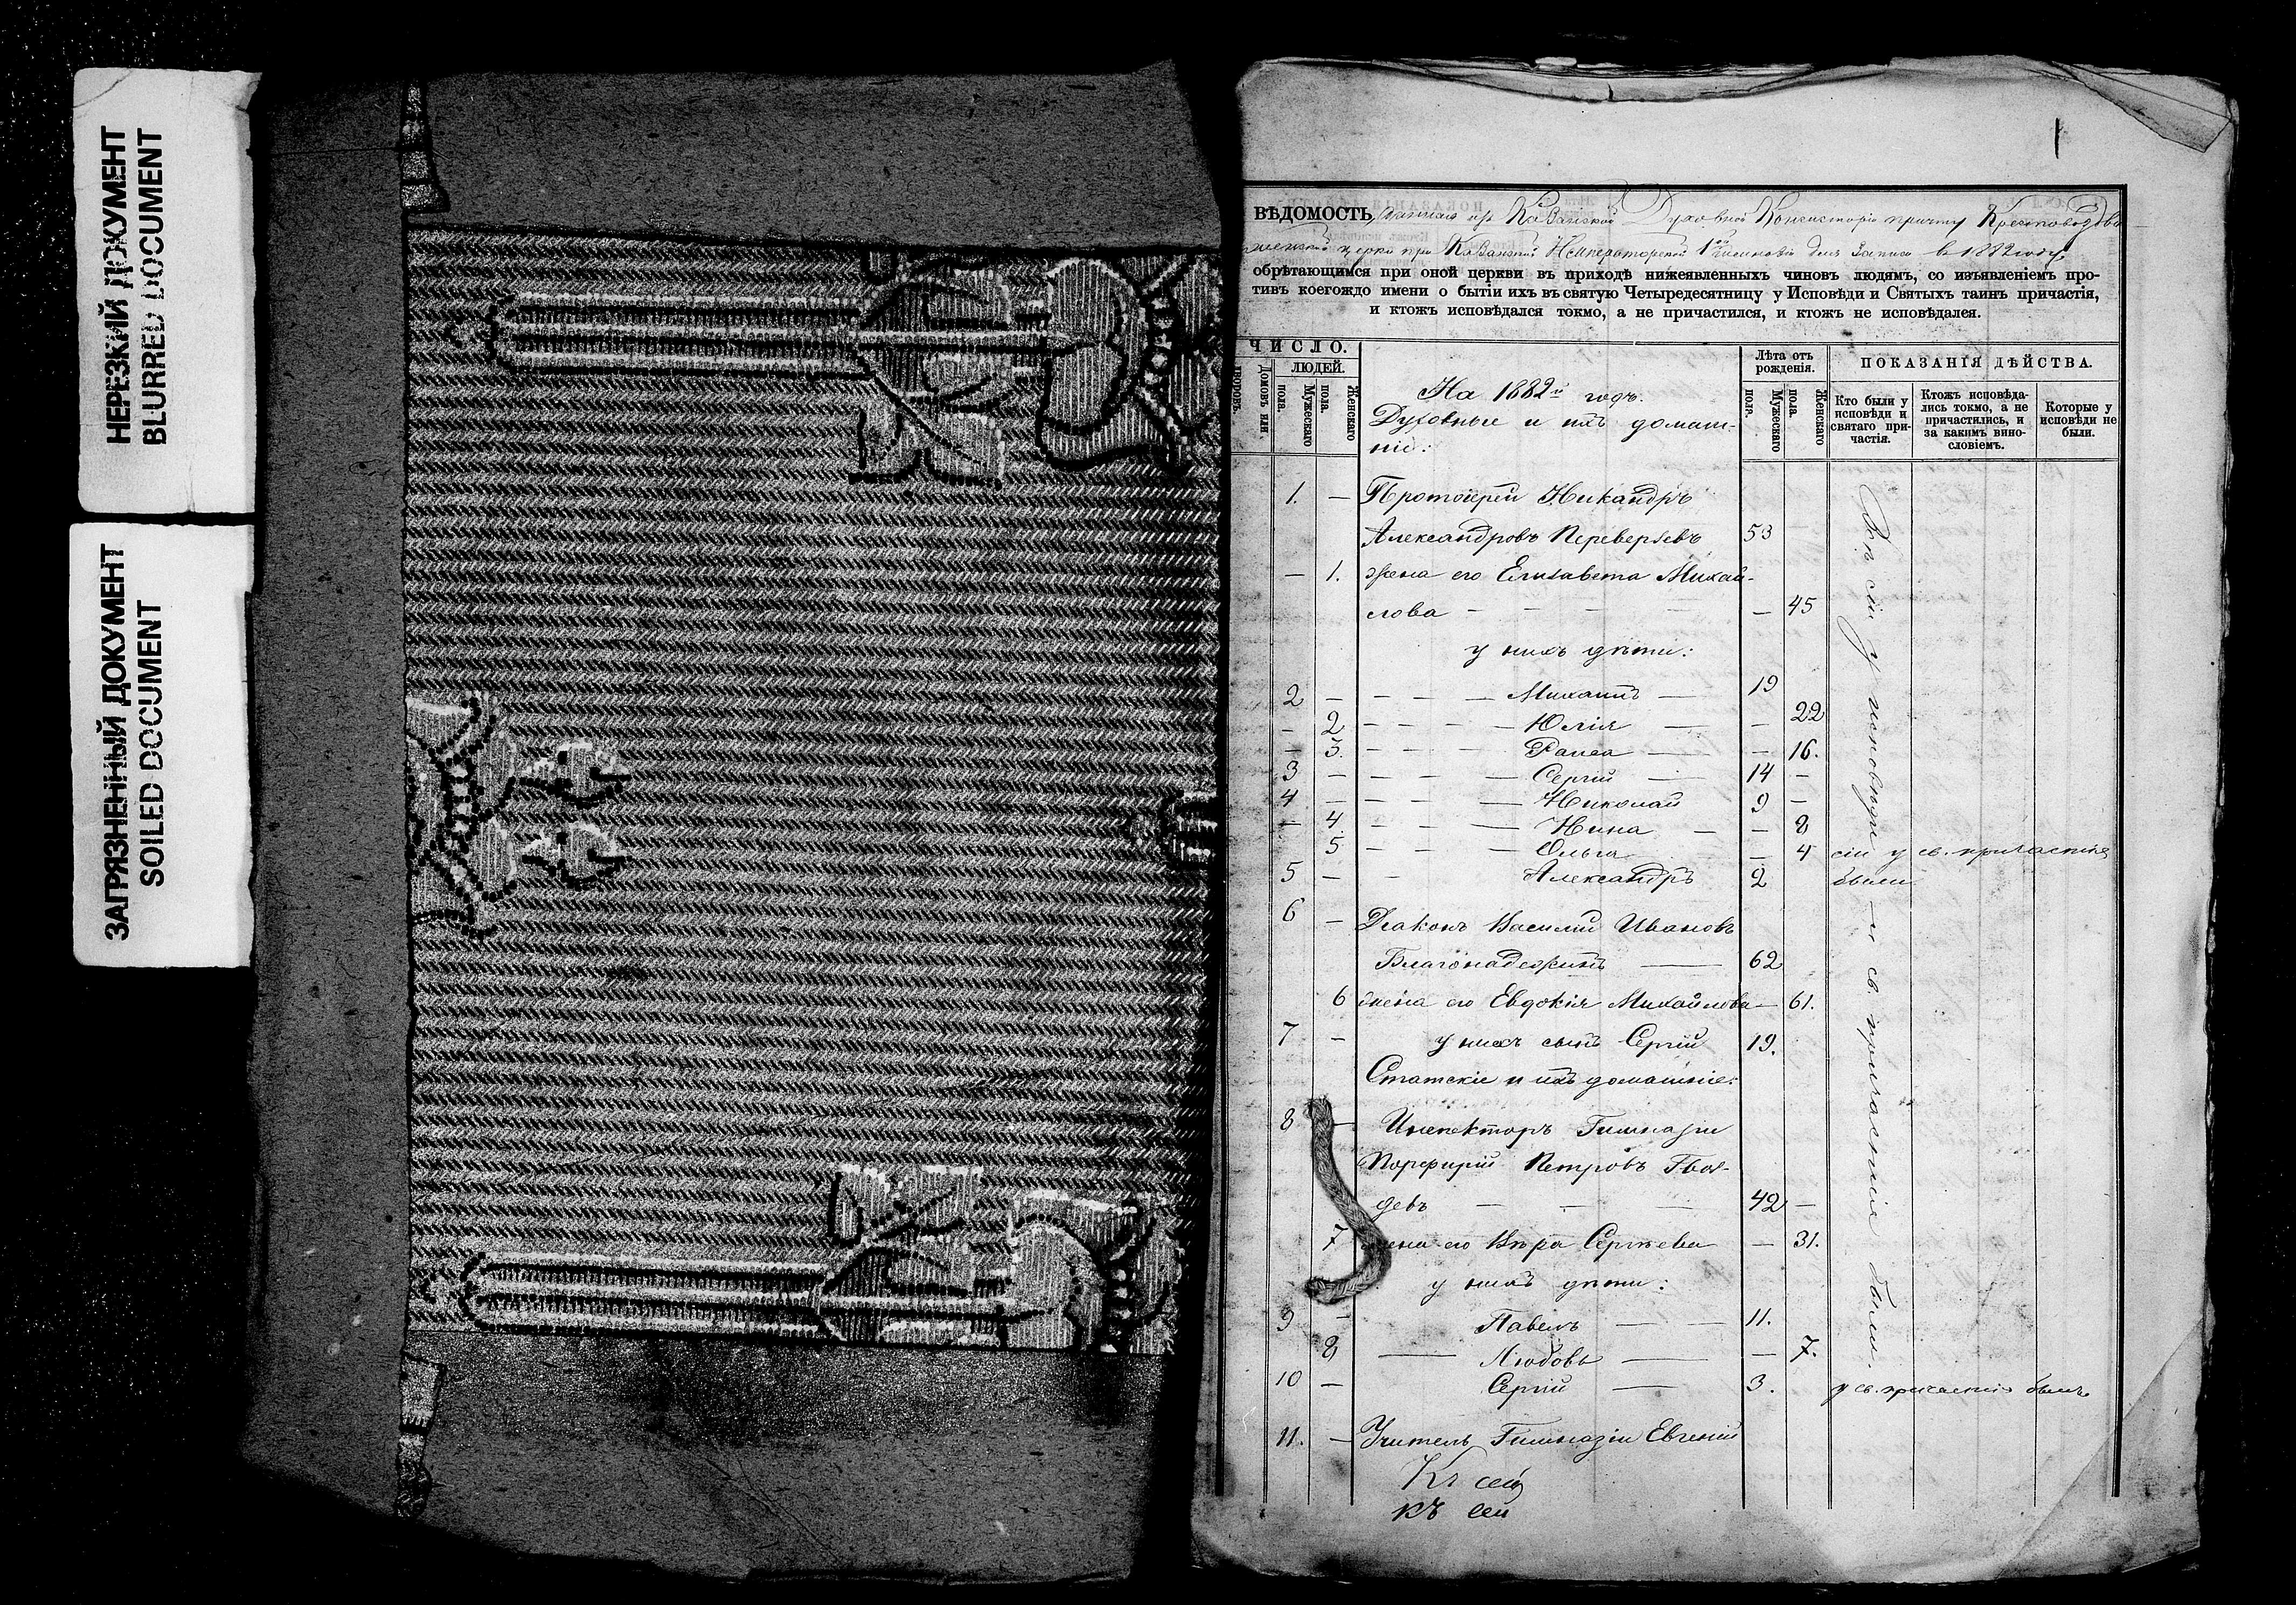 НЕРЕЗКИЙ ДОКУМЕНТ
BLURRED DOCUMENT
ЗАГРЯЗНЕННЫЙ ДОКУМЕНТ
SOILED DOCUMENT
1
ВѢДОМОСТЬ, данная изъ Казанской Духовной Консисторіи причту Крестовоздви
женской церкви при Казанской Императорской 1ой Гимназіи для записи в 1882 году,
обрѣтающимся при оной церкви въ приходѣ нижеявленныхъ чиновъ людямъ, со изъявленіемъ про-
тивъ коегождо имени о бытіи ихъ въ святую Четыредесятницу у Исповѣди и Святыхъ таинъ причастія,
и ктожъ исповѣдался токмо, а не причастился, и ктожъ не исповѣдался.
ЧИСЛО.
Домовъ или дворовъ.
ЛЮДЕЙ.
Мужескаго пола.
Женскаго пола.
На 1882й годъ.
Духовные и ихъ домаш-
ніе:
Лѣта отъ рожденія.
Мужескаго пол.
Женскаго пола.
ПОКАЗАНІЯ ДѢЙСТВА.
Кто были у исповѣди и святаго при-частія.
Ктожъ исповѣда-лись токмо, а не причастились, и за какимъ вино-словіемъ.
Которые у исповѣди не были.
1. — Протоіерей Никандръ
Александровъ 53
— 1. жена его Елизавета Михай-
лова — — 45
у нихъ дѣти:
2 — Михаилъ — 19
— 2 — Юлія — 22
— 3. — Раиса — 16.
3 — Сергій — 14 —
4 — Николай 9 —
— 4. — Нина — 8
5 — Ольга — 4 сіи у св. причастія
5 — Александръ 2 были
6 — Діаконъ Василий Ивановъ
Благонадеждинъ — 62
6 жена его Евдокія Михайлова — 61.
7 — у нихъ сынъ Сергій 19.
Статскіе и ихъ домашніе:
8 — Инспекторъ Гимназіи
Порфирій Петровъ Гвоз-
девъ — 42 —
7 жена его Вѣра Сергѣева — 31.
у нихъ дѣти:
9 — Павелъ — 11.
8 — Любовь — 7.
10 — Сергій — 3. у св. причастія былъ
11. — Учитель Гимназіи Евгеній
Къ сей
къ сей
Всѣ сіи у исповѣди и св. причастія были.